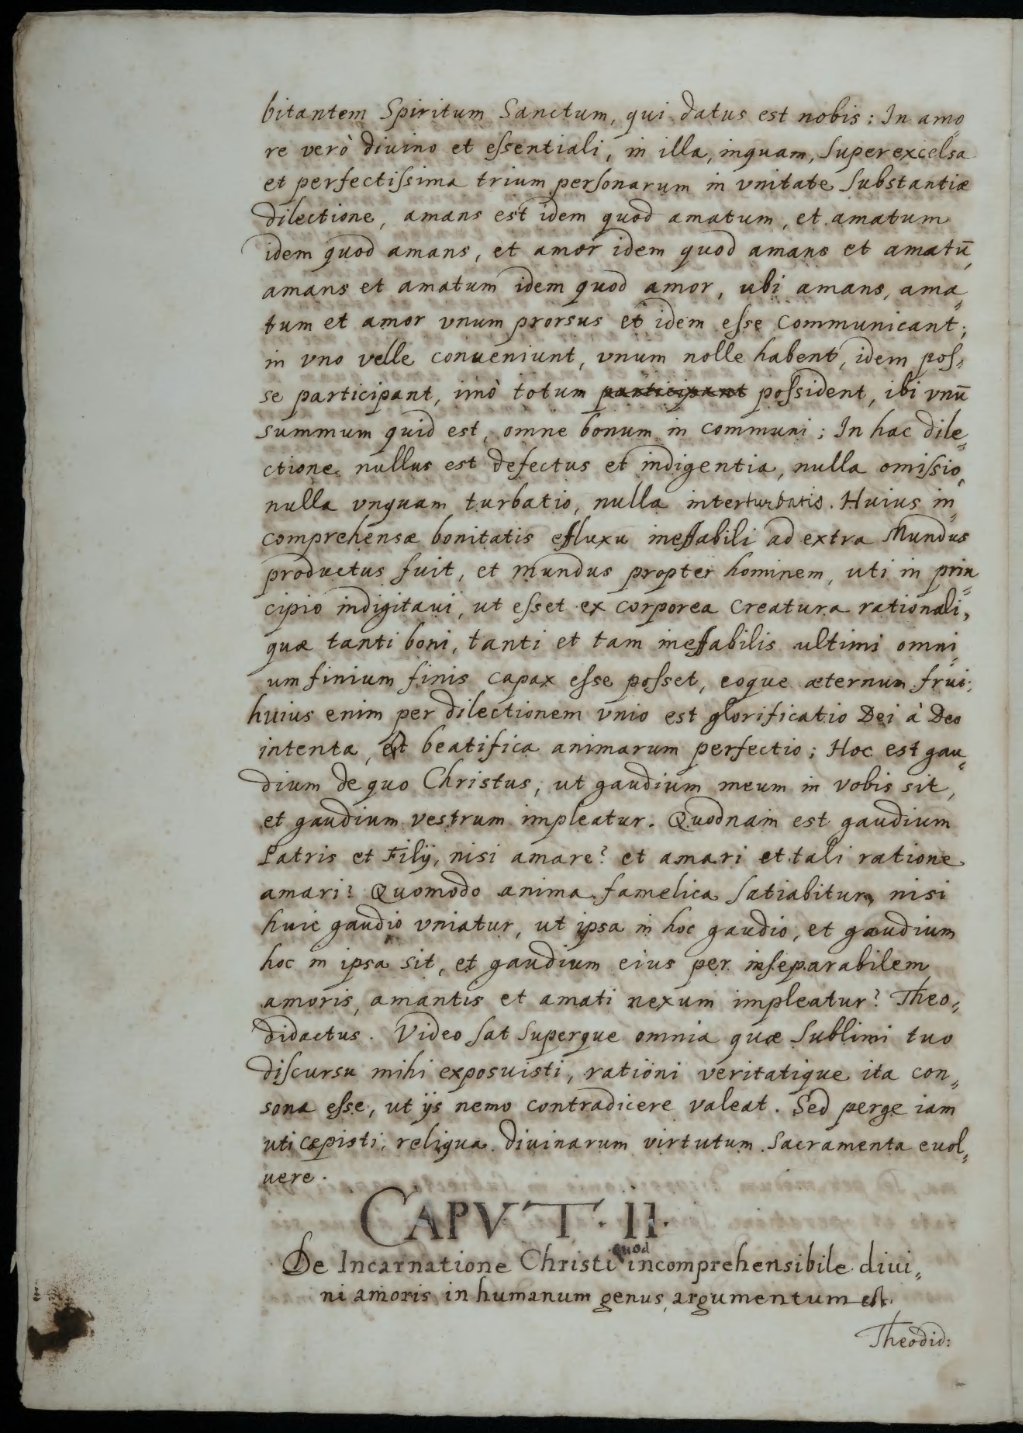 bitantem Spiritum Sanctum, qui datus est nobis: In amo
re verò diuino et eſsentiali, in illa, inquam, ſuperexcelsa
et perfectiſsima trium perſonarum in vnitate ſubstantiæ
dilectione, amans est idem quod amatum, et amatum
idem quod amans, et amor idem quod amans et amatū,
amans et amatum idem quod amor, ubi amans, ama„
tum et amor vnum prorsus et idem eſse communicant;
in vno velle conueniunt, vnum nolle habent, idem poſ„
se participant, imò totum participant poſsident, ibi vnū
summum quid est, omne bonum in communi; In hac dile„
ctione nullus est defectus et indigentia, nulla omiſsio,
nulla vnquam turbatio, nulla interturbatis. Huius in„
comprehensæ bonitatis effluxu ineffabili ad extra Mundus
productus fuit, et mundus propter hominem, uti in prin„
cipio indigitaui, ut eſset ex corporea creatura rationali,
quæ tanti boni, tanti et tam ineffabilis ultimi omni„
um finium finis capax eſse poſset, eoque æternum frui;
huius enim per dilectionem vnio est glorificatio Dei à Deo
intenta, est beatifica animarum perfectio; Hoc est gau„
dium de quo Christus; ut gaudium meum in vobis sit,
et gaudium vestrum impleatur. Quodnam est gaudium
Patris et Filij, nisi amare? et amari et tali ratione
amari? Quomodo anima famelica ſatiabitur, nisi
huic gaudio vniatur, ut ipsa in hoc gaudio, et gaudium
hoc in ipsa sit, et gaudium eius per inſeparabilem
amoris, amantis et amati nexum impleatur? Theo„
didactus. Video ſat ſuperque omnia quæ ſublimi tuo
diſcursu mihi exposuisti, rationi veritatique ita con„
sona eſse, ut ijs nemo contradicere valeat. Sed perge iam
uti cæpisti, reliqua diuinarum virtutum Sacramenta euol„
uere.
CAPVT. II.
De Incarnatione Christi quod incomprehensibile diui„
ni amoris in humanum genus argumentum est.
Theodid: